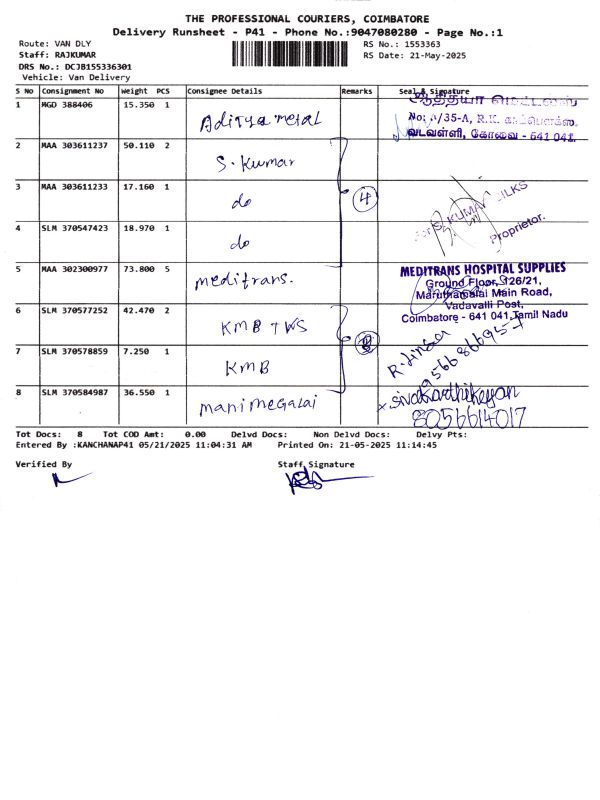 THE PROFESSIONAL COURIERS, COIMBATORE
Delivery Runsheet - P41 - Phone No.:9047080280 - Page No.:1
Route: VAN DLY
Staff: RAJKUMAR
DRS No.: DCJB155336301
Vehicle: Van Delivery
RS No.: 1553363
RS Date: 21-May-2025
S No Consignment No Weight PCS Consignee Details Remarks Seal & Signature
1 MGD 388406 15.350 1 Aditya metal
ஆதித்யா மெட்டல்ஸ்
No: 1/35-A, R.K. காம்ப்ளெக்ஸ்,
வடவள்ளி, கோவை - 641 041.
2 MAA 303611237 50.110 2 S. Kumar
3 MAA 303611233 17.160 1 do 4
For S. KUMAR SILKS
Proprietor.
4 SLM 370547423 18.970 1 do
5 MAA 302300977 73.800 5 meditrans.
MEDITRANS HOSPITAL SUPPLIES
Ground Floor, 126/21,
Maruthamalai Main Road,
Vadavalli Post,
Coimbatore - 641 041, Tamil Nadu
6 SLM 370577252 42.470 2 KMB TWS
7 SLM 370578859 7.250 1 KMB
8 SLM 370584987 36.550 1 manimegalai
x Sivakarthikeyan
8056614017
Tot Docs: 8 Tot COD Amt: 0.00 Delvd Docs: Non Delvd Docs: Delvy Pts:
Entered By :KANCHANAP41 05/21/2025 11:04:31 AM Printed On: 21-05-2025 11:14:45
Verified By Staff Signature